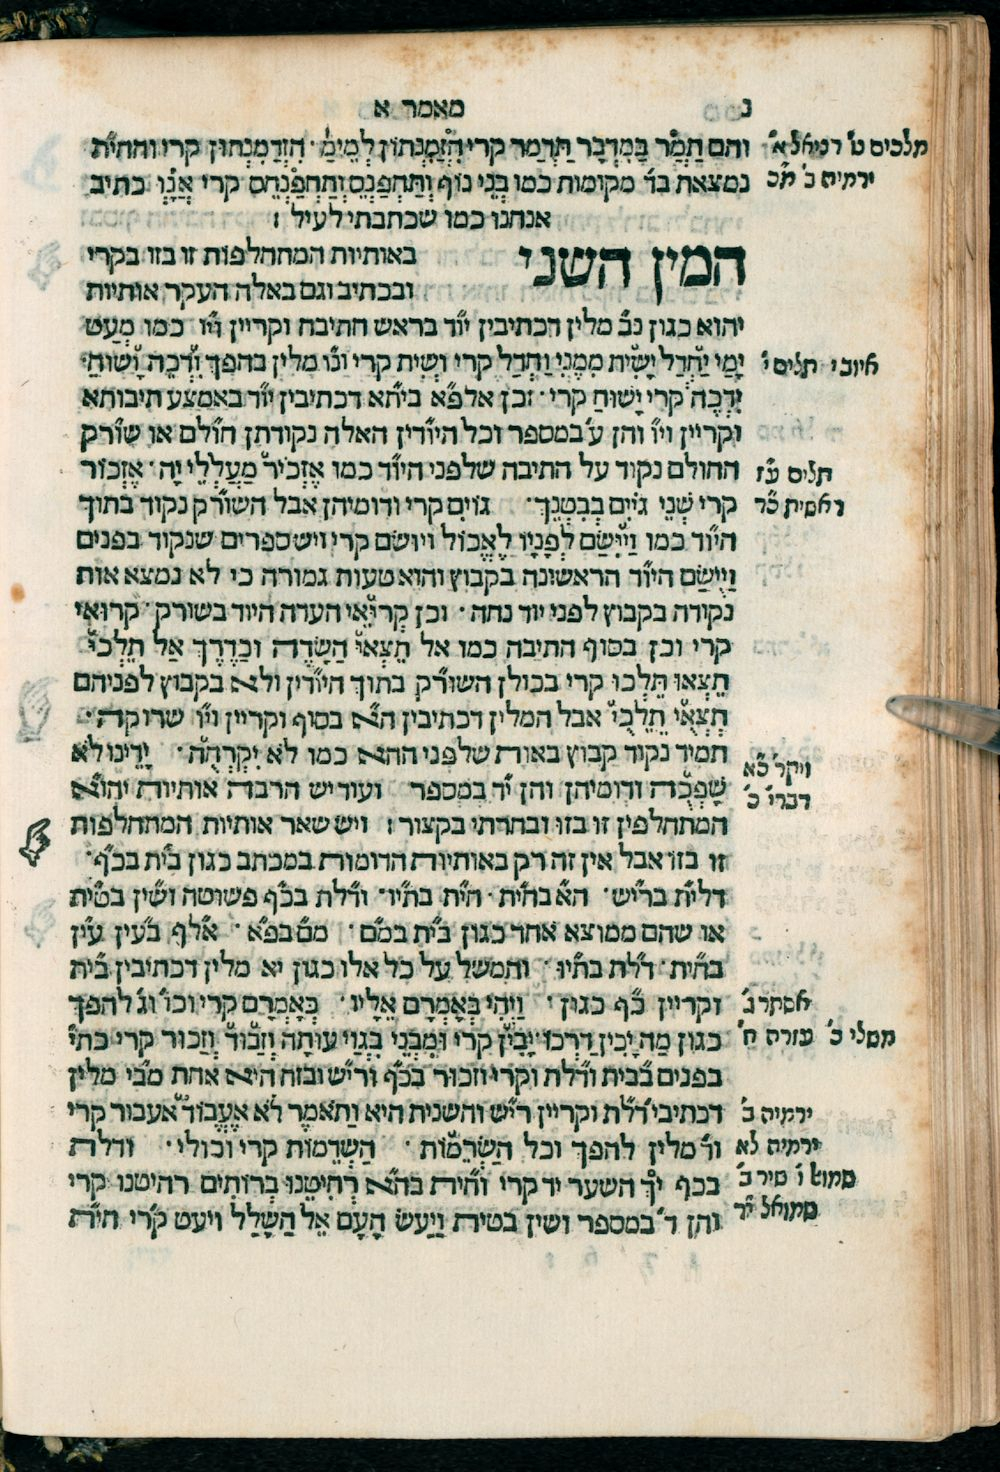 נ מאמר א
והם תַמֹר בַמִדְבָר תַּדְמֹר קרי הִזְמִנְתּוּן לְמֵימַר הִזְדַמִנְתּוּן קרו והחי״ת
מלכים ט׳ דניאל א׳
נמצאת בד׳ מקומות כמו בְּנֵי נוֹף וְתַּחְפַּנֵס וְתַחְפַּנְחֵס קרי אֲנָוּ כתיב
ירמיה ב׳
אנחנו כמו שכתבתי לעיל :
המין השני
באותיות המתחלפות זו בזו בקרי
ובכתיב וגם באלה העקר אותיות
יהוא כגון נב״ מלין דכתיבין יו״ד בראש התיבה וקריין וי״ו כמו מְעַט
יָמַי יַחֲדַל יָשִׁית מִמֶנִי וַחֲדַל קרי וְשִׁית קרי וי״ו מלין בהפך וְדָכֹה וָשׁוֹחַ
איוב י׳ תלים י׳
יִדְכֶּה קרי יָשׁוֹחַ קרי וכן אלפ״א בית״א דכתיבין יו״ד באמצע תיבותא
וקריין וי״ו והן ע׳ במספר וכל היו״דין האלה נקודתן חולם או שורק
החולם נקוד על התיבה שלפני היו״ד כמו אֶזְכֹּיר מַעַלְלֵי יָה אֶזְכּוֹר
תלים ע״ז
קרי שְׁנֵי גֹיִים בְּבִטְנֵךְ גוֹיִם קרי ודומיהן אבל השור״ק נקוד בתוך
ראשית כ״ה
היו״ד כמו וַיּישַׂם לְפָנָיו לֶאֱכוֹל ויושם קרי ויש ספרים שנקוד בפנים
וַיֻישַׂם היו״ד הראשונה בקבוץ והוא טעות גמורה כי לא נמצא אות
נקודה בקבוץ לפני יוד נחה וכן קְרִיאֵי העדה היוד בשורק קרואי
קרי וכן בסוף התיבה כמו אל תֵּצְאִי הַשָׂדֶה וּבַדֶרֶךְ אַל תֵּלְכִי
תֵּצְאוּ תֵּלְכוּ קרי בכולן השור״ק בתוך היו״דין ולא בקבוץ לפניהם
תֵּצְאֻי תֵּלְכֻי אבל המלין דכתיבין ה״א בסוף וקריין וי״ו שרוקה
תמיד נקוד קבוץ באות שלפני הה״א כמו לֹא יִקְרְחֻה יָדֵינוּ לֹא
ויקר׳ כ״א
שָׁפְכֻה ודומיהן והן י״ד במספר ועוד יש הרבה אותיות יהו״א
דברי׳ כ׳
המתחלפין זו בזו ובחרתי בקצור : ויש שאר אותיות המתחלפות
זו בזו אבל אין זה רק באותיות הדומות במכתב כגון בי״ת בכ״ף
דלי״ת ברי״ש ה״א בחי״ת חי״ת בתי״ו ודל״ת בכ״ף פשוטה ושי״ן בטי״ת
או שהם ממוצא אחד כגון בי״ת במ״ם מ״ם בפ״א אל״ף בעי״ן עי״ן
בחי״ת דל״ת בתי״ו והמשל על כל אלו כגון יא מלין דכתיבין בי״ת
וקריין כ״ף כגון וַיְהִי בְּאָמְרָם אֵלָיו כְּאָמְרָם קרי וכו׳ וג׳ להפך
אסתר ג׳
כגון מַה יָכִין דַרְכּוֹ יָבִין קרי וּמִבְּנֵי בִּגְוַי עוּתָה וְזָבוּד וְזַכּוּר קרי כתי׳
משלי כ׳ עזרה ח׳
בפנים בבי״ת ודל״ת וקרי וזכור בכ״ף ורי״ש ובזה היא אחת מב׳ מלין
דכתיבי׳ דל״ת וקריין רי״ש והשנית היא וַתֹאמְרִ לֹא אֶעֱבוֹד אעבור קרי
ירמיה ב׳
וד׳ מלין להפך וכל הַשְׁרֵמוֹת הַשְׁדֵמוֹת קרי וכולי ודלת
ירמיה לא
בכף יַךְ השער יד קרי וחי״ת בה״א רְחִיטֵנוּ בְּרוֹתִים רהיטנו קרי
והן ד׳ במספר ושין בטית וַיַעַשׂ הָעָם אֶל הַשָׁלַל ויעט קרי חית